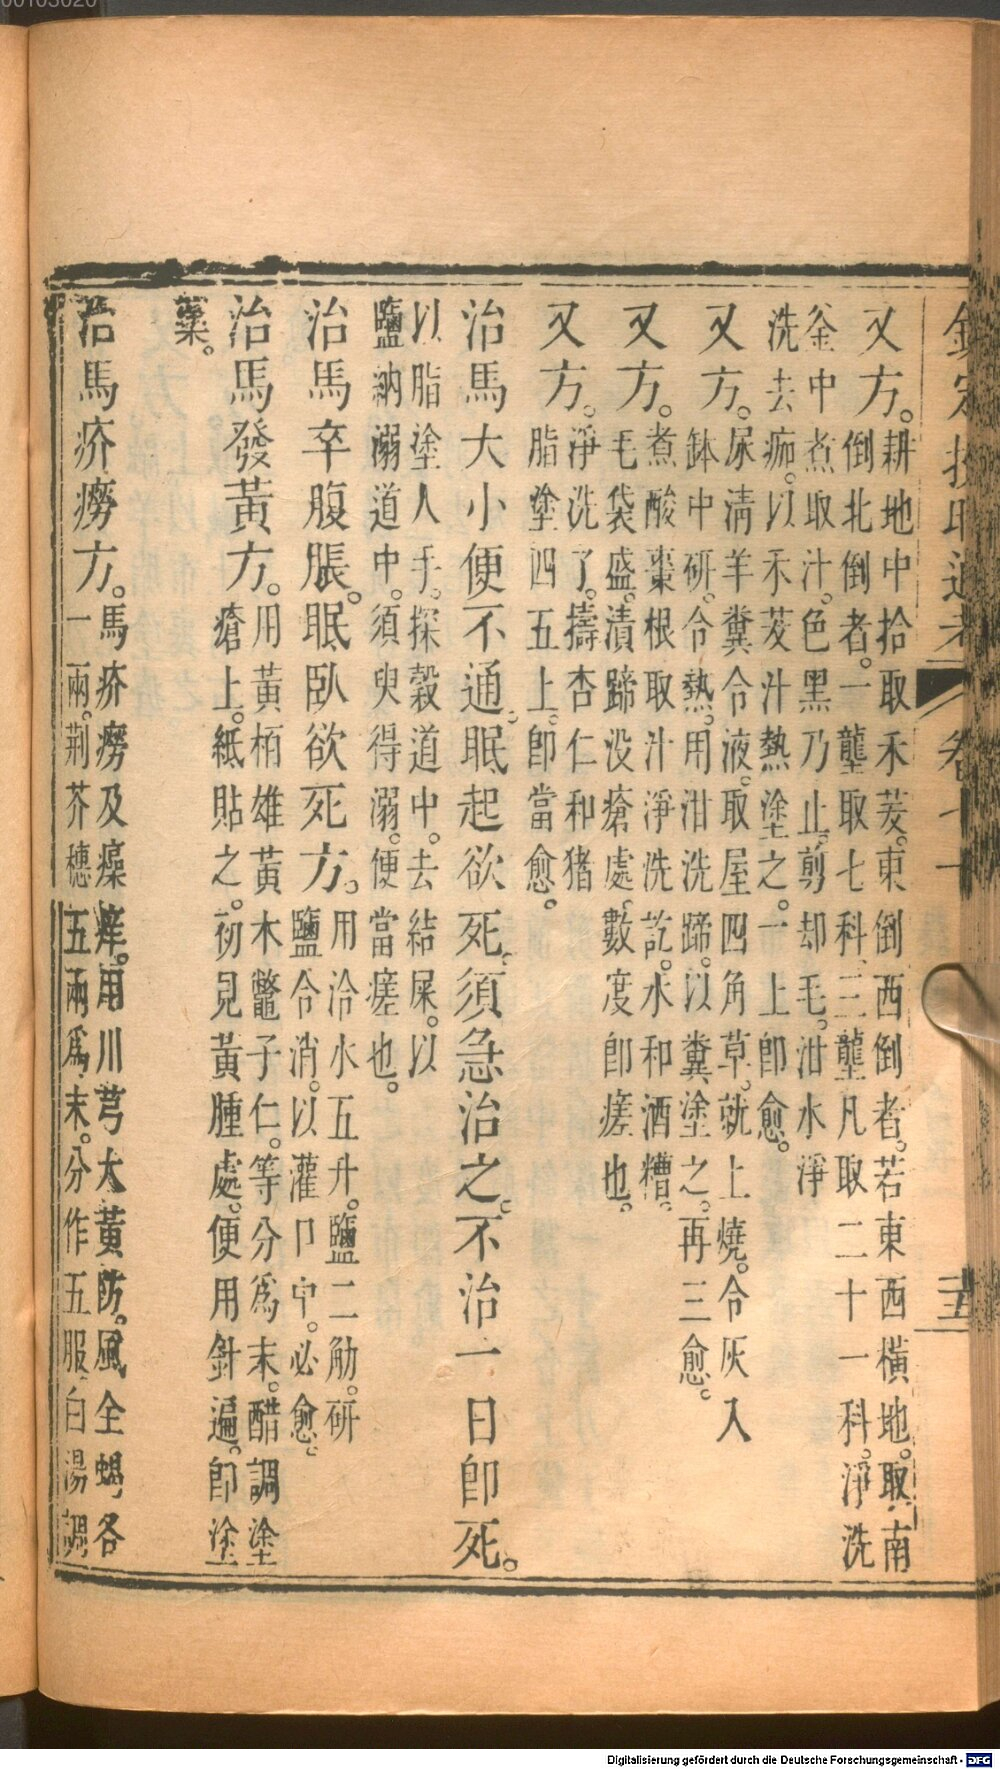 又方。耕地中拾取禾茇。東倒西倒者。若東西橫地。取南
倒北倒者。一壟取七科。三壟凡取二十一科。淨洗
釜中煮取汁。色黑乃止。剪却毛。泔水淨
洗去痂。以禾茇汁熱塗之。一上卽愈。
又方。尿清羊糞令液。取屋四角草。就上燒。令灰入
鉢中研。令熟。用泔洗蹄。以糞塗之。再三愈。
又方。煮酸棗根取汁淨洗訖。水和酒糟。
毛袋盛。漬蹄没瘡處。數度卽瘥也。
又方。淨洗了。擣杏仁和猪
脂塗四五上。卽當愈。
治馬大小便不通。眠起欲死。須急治之。不治一日卽死。
以脂塗人手。探穀道中。去結屎。以
鹽納溺道中。須臾得溺。便當瘥也。
治馬卒腹脹。眠臥欲死方。用冷水五升。鹽二觔。研
鹽令消。以灌口中。必愈。
治馬發黃方。用黃栢雄黃木鼈子仁。等分爲末。醋調塗
瘡上。紙貼之。初見黃腫處。便用針遍。卽塗
藥。
治馬疥癆方。馬疥癆及癢。用川芎大黃防。風全蝎各
一兩。荆芥穗五兩爲末。分作五服白湯調
卷七十
Digitalisierung gefördert durch die Deutsche Forschungsgemeinschaft - DFG